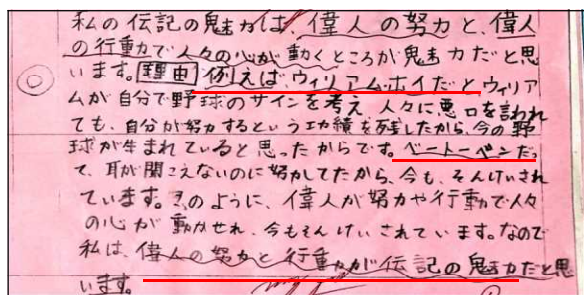 私の伝記の魅力は、偉人の努力と、偉人
の行動力で人々の心が動くところが魅力だと思
います。理由 例えば、ウィリアム・ホイだと、ウィリア
ムが自分で野球のサインを考え 人々に悪口を言われ
ても、自分が努力するという功績を残したから、今の野
球が生まれていると思ったからです。ベートーベンだっ
て、耳が聞こえないのに努力してたから、今も、そんけいされ
ています。このように、偉人が努力や行動で人々
の心が動かせれ、今もそんけいされています。なので
私は、偉人の努力と行動力が伝記の魅力だと思
います。